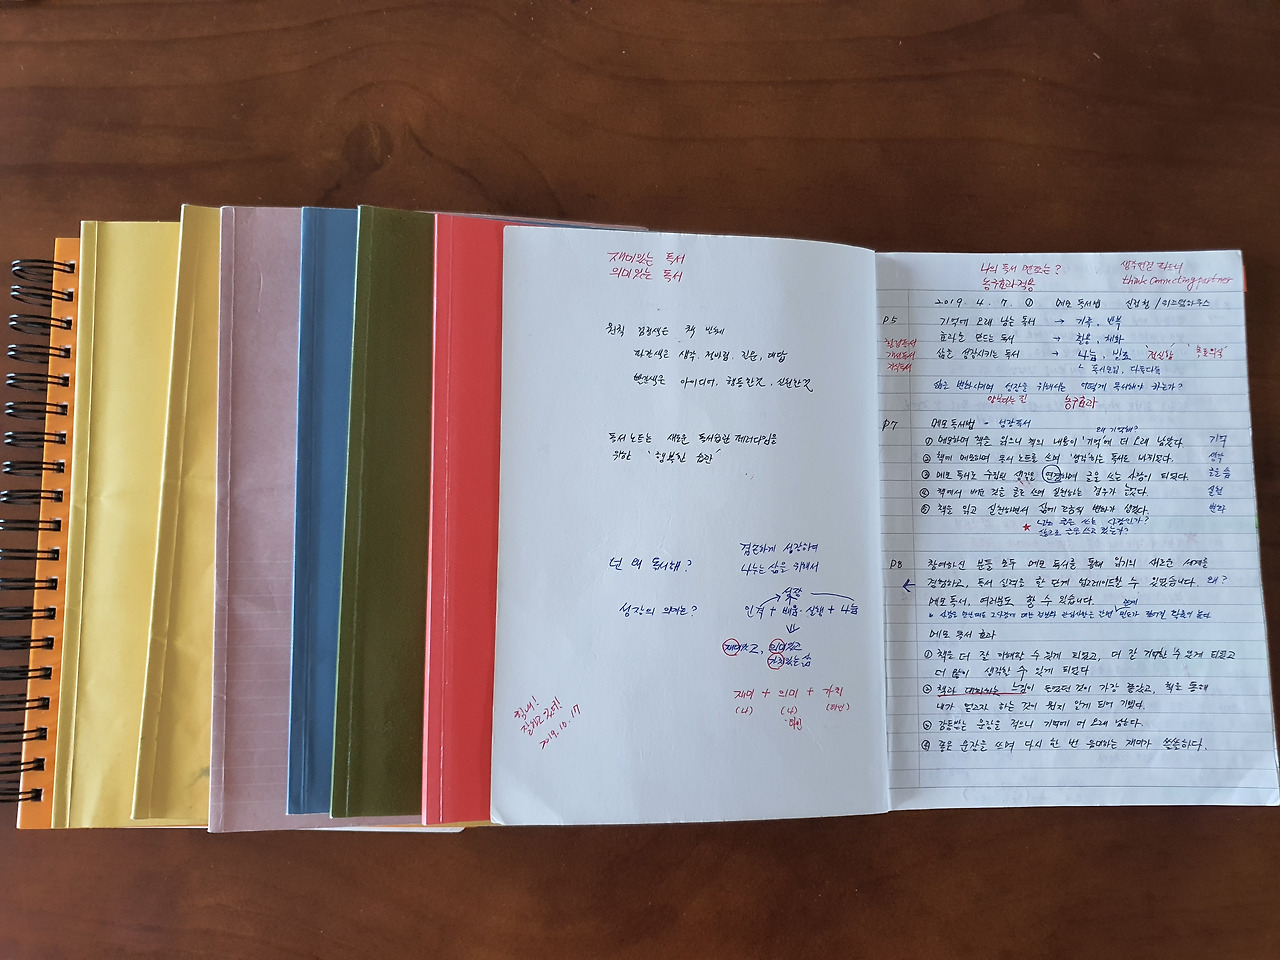 재미있는 독서
의미있는 독서
원칙 검정색은 책 인쇄
파란색은 생각, 저비팀, 질문, 대답
빨간색은 아이디어, 행동한것, 실천한것
독서노트는 새로운 독서습관
위한 '행복한 습관'
넌 왜 독서해?
겸손하게 성장하여
나누는 삶을 위해서
성장의 의미는?
성장
인격 + 배움·실행 + 나눔
재미있고, 의미있고
가치있는 삶
재미 + 의미 + 가치
(나) (나) (타인)
타인
잘하고 있어!
2019.10.17
나의 독서 멘토는?
농구효과적용
생각연결 파트너
think connecting partner
2019. 4. 7. ① 메모 독서법 신정철 / 위즈덤하우스
P5 기억에 오래 남는 독서 → 기록, 반복
효과를 만드는 독서 → 활용, 체화
삶을 성장시키는 독서 → 나눔, 발표
독서모임,
삶을 변화시키며 성장을 위해서는 어떻게 독서해야 하는가?
농구효과
P7 메모 독서법 = 성장독서
왜 기억해?
① 메모하며 책을 읽으니 책의 내용이 '기억'에 더 오래 남았다. 기억
② 책에 메모하며 독서 노트를 쓰며 '생각'하는 독서로 나아갔다. 생각
③ 메모 독서로 수집된 생각을 연결하여 글을 쓰는 사람이 되었다. 글을 씀
④ 책에서 배운 것을 글로 쓰며 실천하는 경우가 늘었다. 실천
⑤ 책을 읽고 실천하면서 삶에 조금씩 변화가 생겼다. 변화
★ 나는 글을 쓰는 사람인가?
삶으로 글을 쓰고 있는가?
P8 참여하신 분들 모두 메모 독서를 통해 읽기의 새로운 세계를
경험하고, 독서 실력을 한 단계 업그레이드할 수 있었습니다. 왜?
메모 독서, 여러분도 할 수 있습니다.
메모 독서 효과
① 책을 더 잘 이해할 수 있게 되었고, 더 잘 기억할 수 있게 되었고
더 많이 생각할 수 있게 되었다
② 책과 대화하는 느낌이 들었던 것이 가장 좋았고, 책을 통해
내가 얻고자 하는 것이 뭔지 알게 되어 기뻤다.
③ 감동받는 문장을 적으니 기억에 더 오래 남는다.
④ 좋은 문장을 쓰며 다시 한 번 음미하는 재미가 쏠쏠하다.